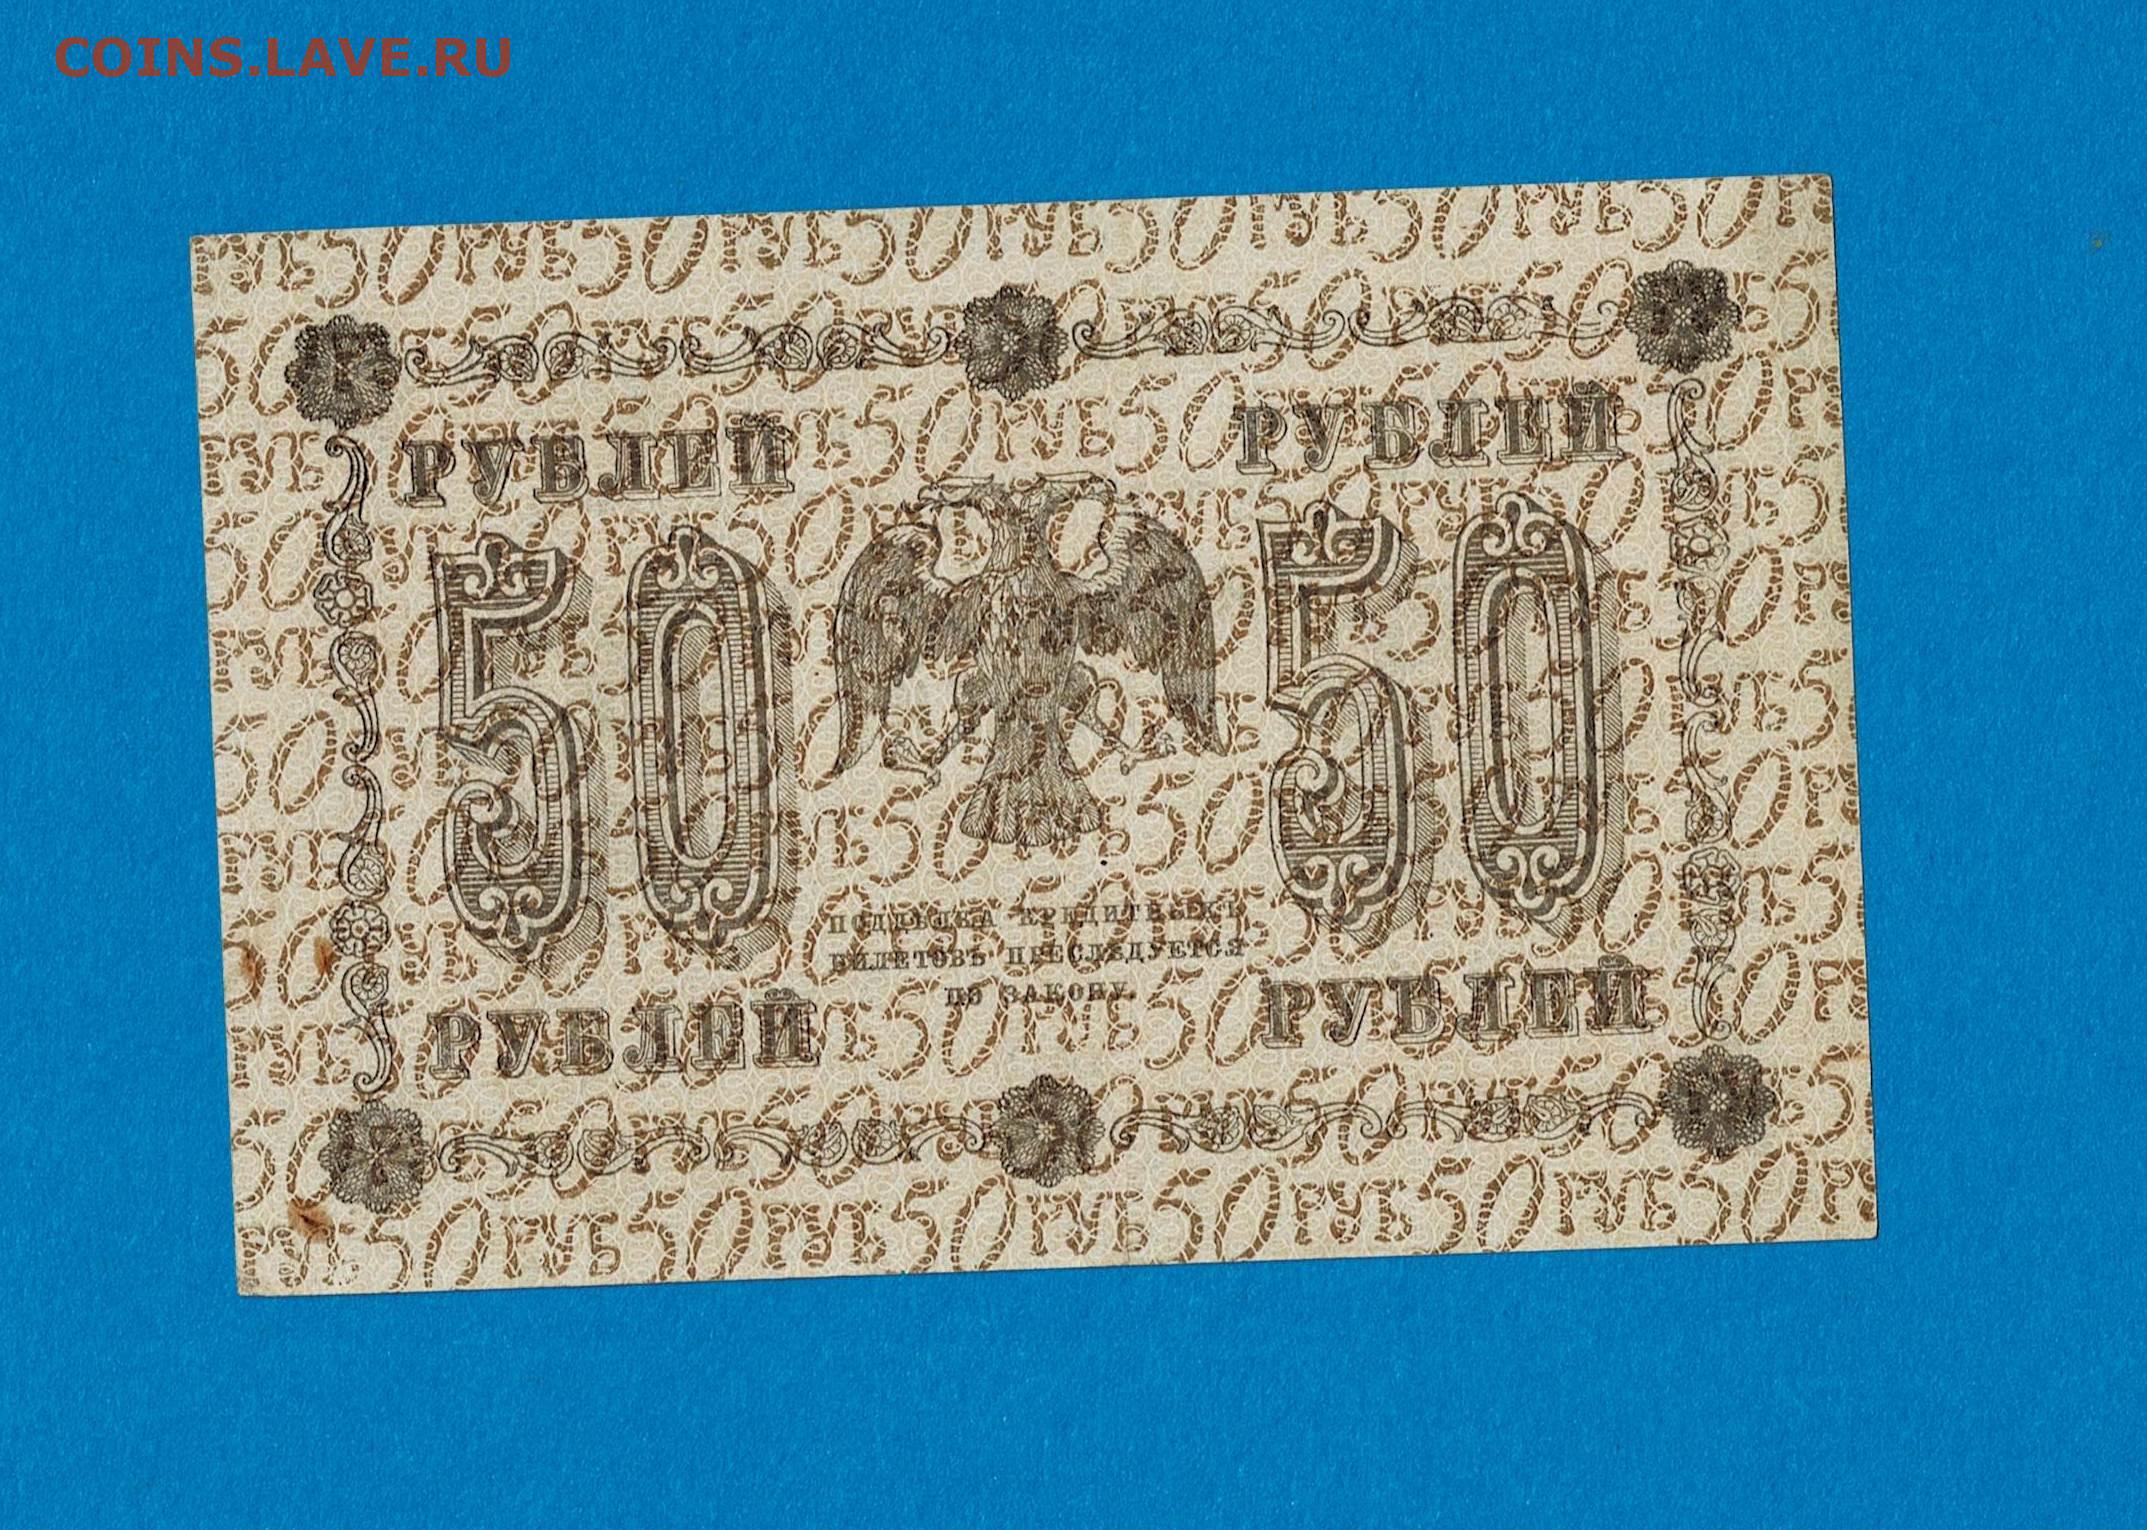 COINS.LAVE.RU
РУБЛЕЙ РУБЛЕЙ
50 50
ПОДДѢЛКА КРЕДИТНЫХЪ
БИЛЕТОВЪ ПРЕСЛѢДУЕТСЯ
ПО ЗАКОНУ.
РУБЛЕЙ РУБЛЕЙ